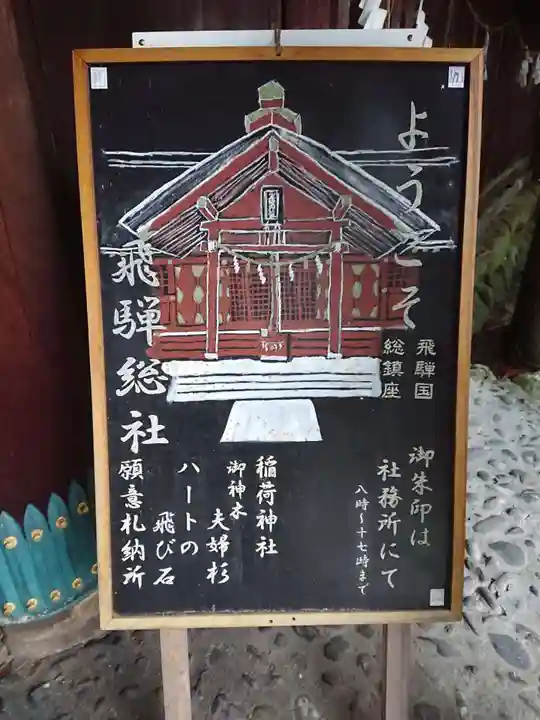 ようこそ
飛騨国
総鎮座
飛騨総社
御朱印は
社務所にて
八時～十七時まで
稲荷神社
御神木
夫婦杉
ハートの
飛び石
願意札納所